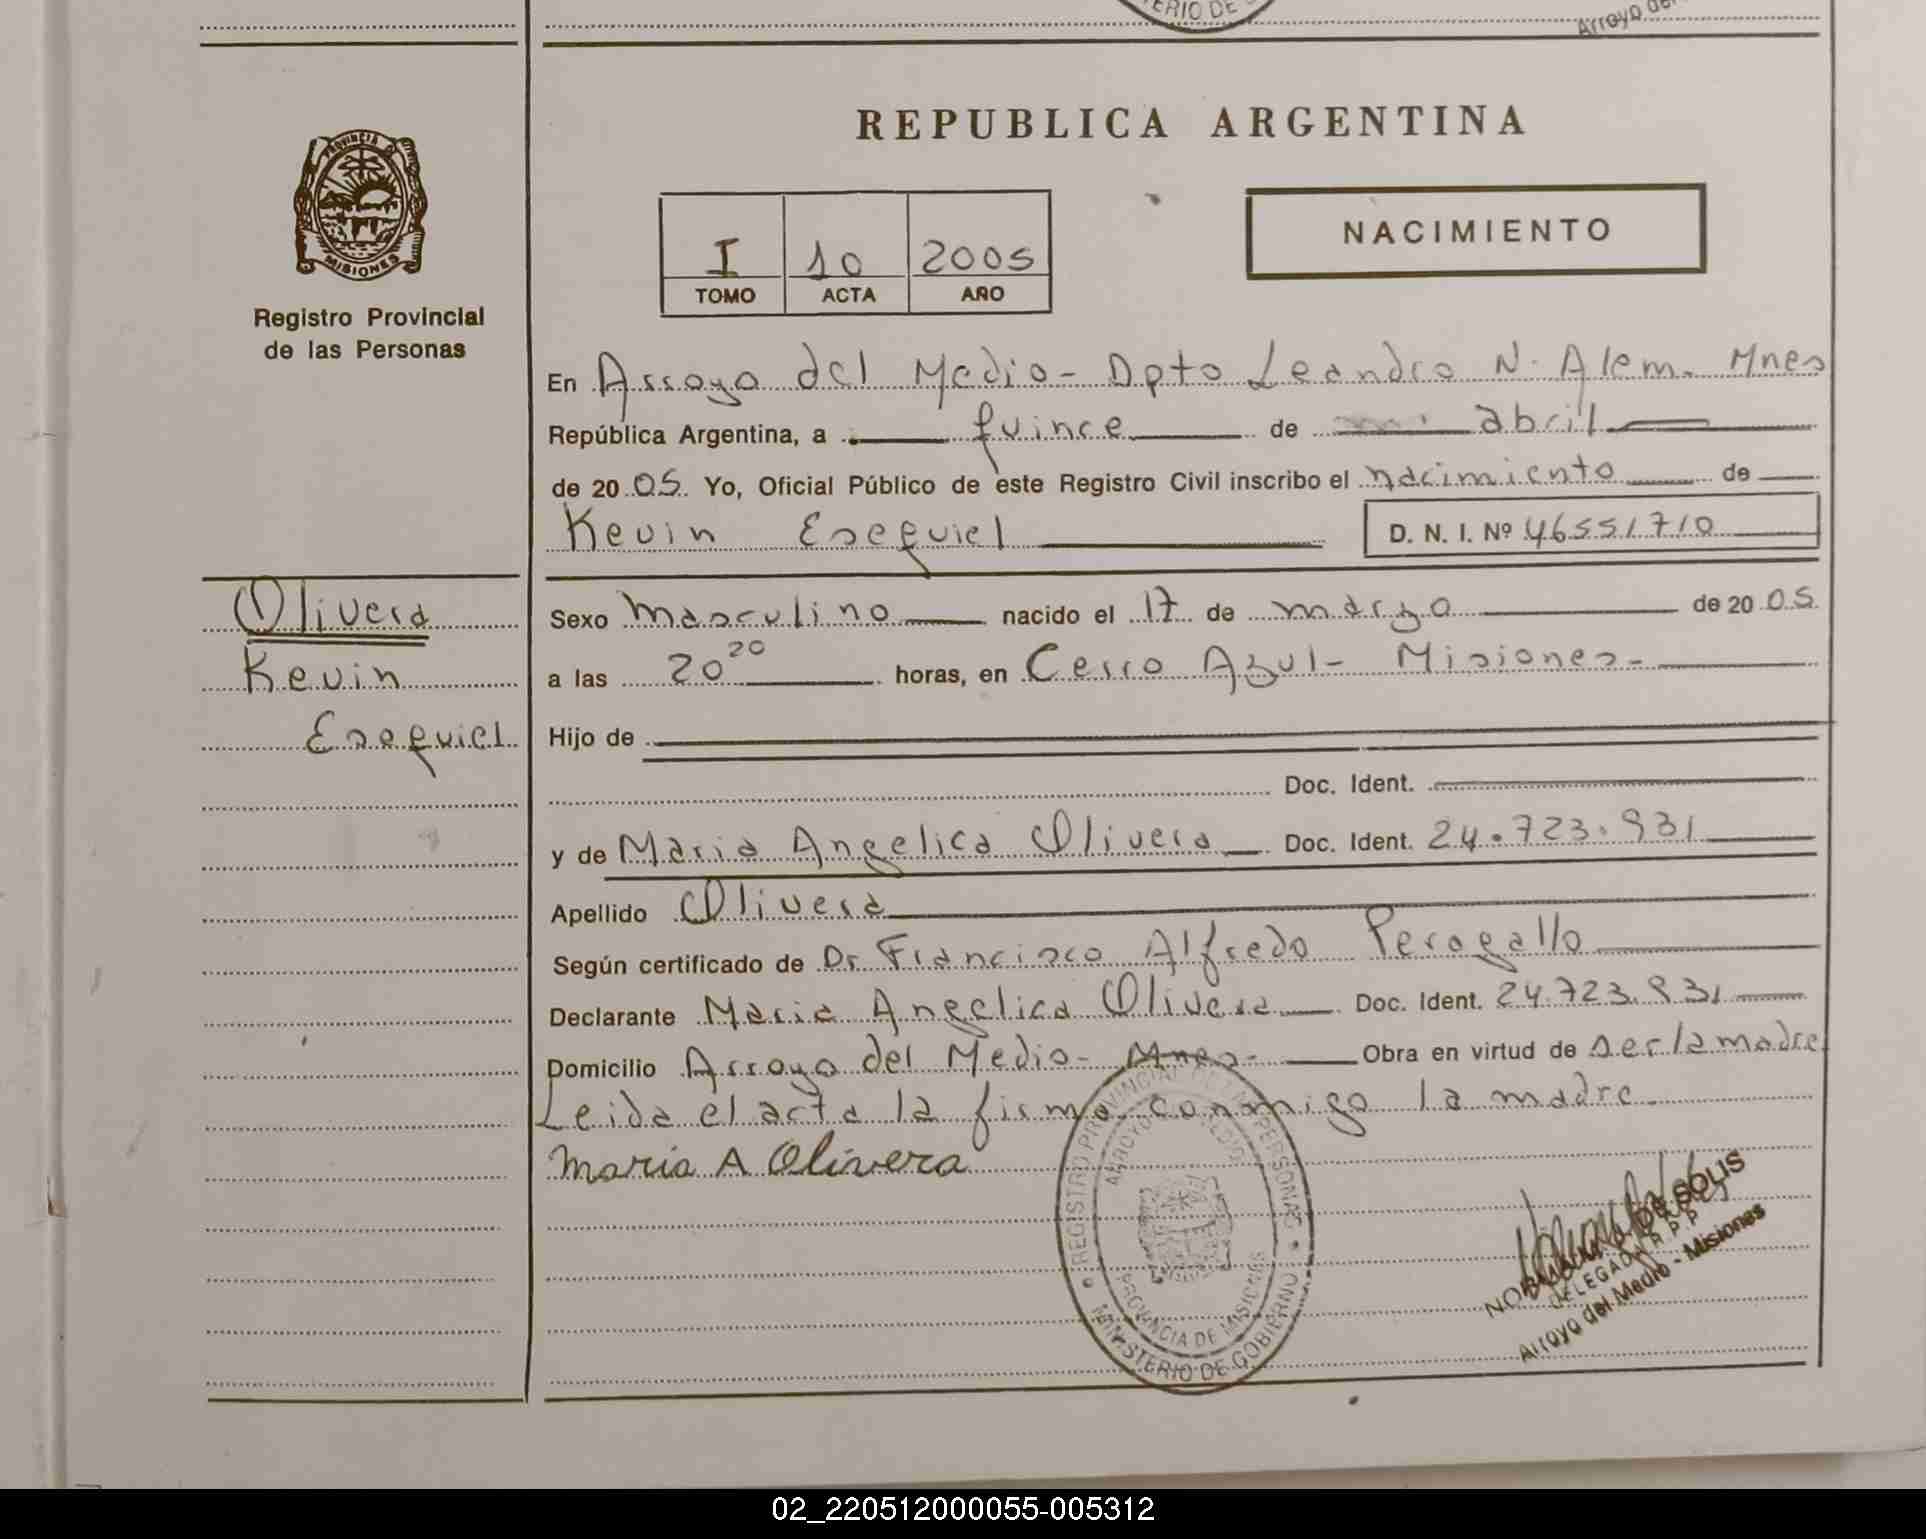 ERIO DE
Arroyo del
PROVINCIA DE
MISIONES
Registro Provincial
de las Personas
REPUBLICA ARGENTINA
I 10 2005
TOMO ACTA AÑO
NACIMIENTO
En Arroyo del Medio - Dpto Leandro N. Alem. Mnes
República Argentina, a quince de abril
de 20 05. Yo, Oficial Público de este Registro Civil inscribo el nacimiento de
Kevin Esequiel D. N. I. Nº 46551710
Olivera
Kevin
Esequiel
Sexo masculino nacido el 17 de marzo de 20 05
a las 20 20 horas, en Cerro Azul - Misiones -
Hijo de
Doc. Ident.
y de Maria Angelica Olivera Doc. Ident. 24.723.931
Apellido Olivera
Según certificado de Dr Francisco Alfredo Peragallo
Declarante Maria Angelica Olivera Doc. Ident. 24.723.931
Domicilio Arroyo del Medio - Mnes - Obra en virtud de ser la madre
Leida el acta la firma conmigo la madre.
Maria A Olivera
REGISTRO PROVINCIAL DE LAS PERSONAS
ARROYO DEL MEDIO
PROVINCIA DE MISIONES
MINISTERIO DE GOBIERNO
NORMA DE SOLIS
DELEGADA R P P
Arroyo del Medio - Misiones
02_220512000055-005312